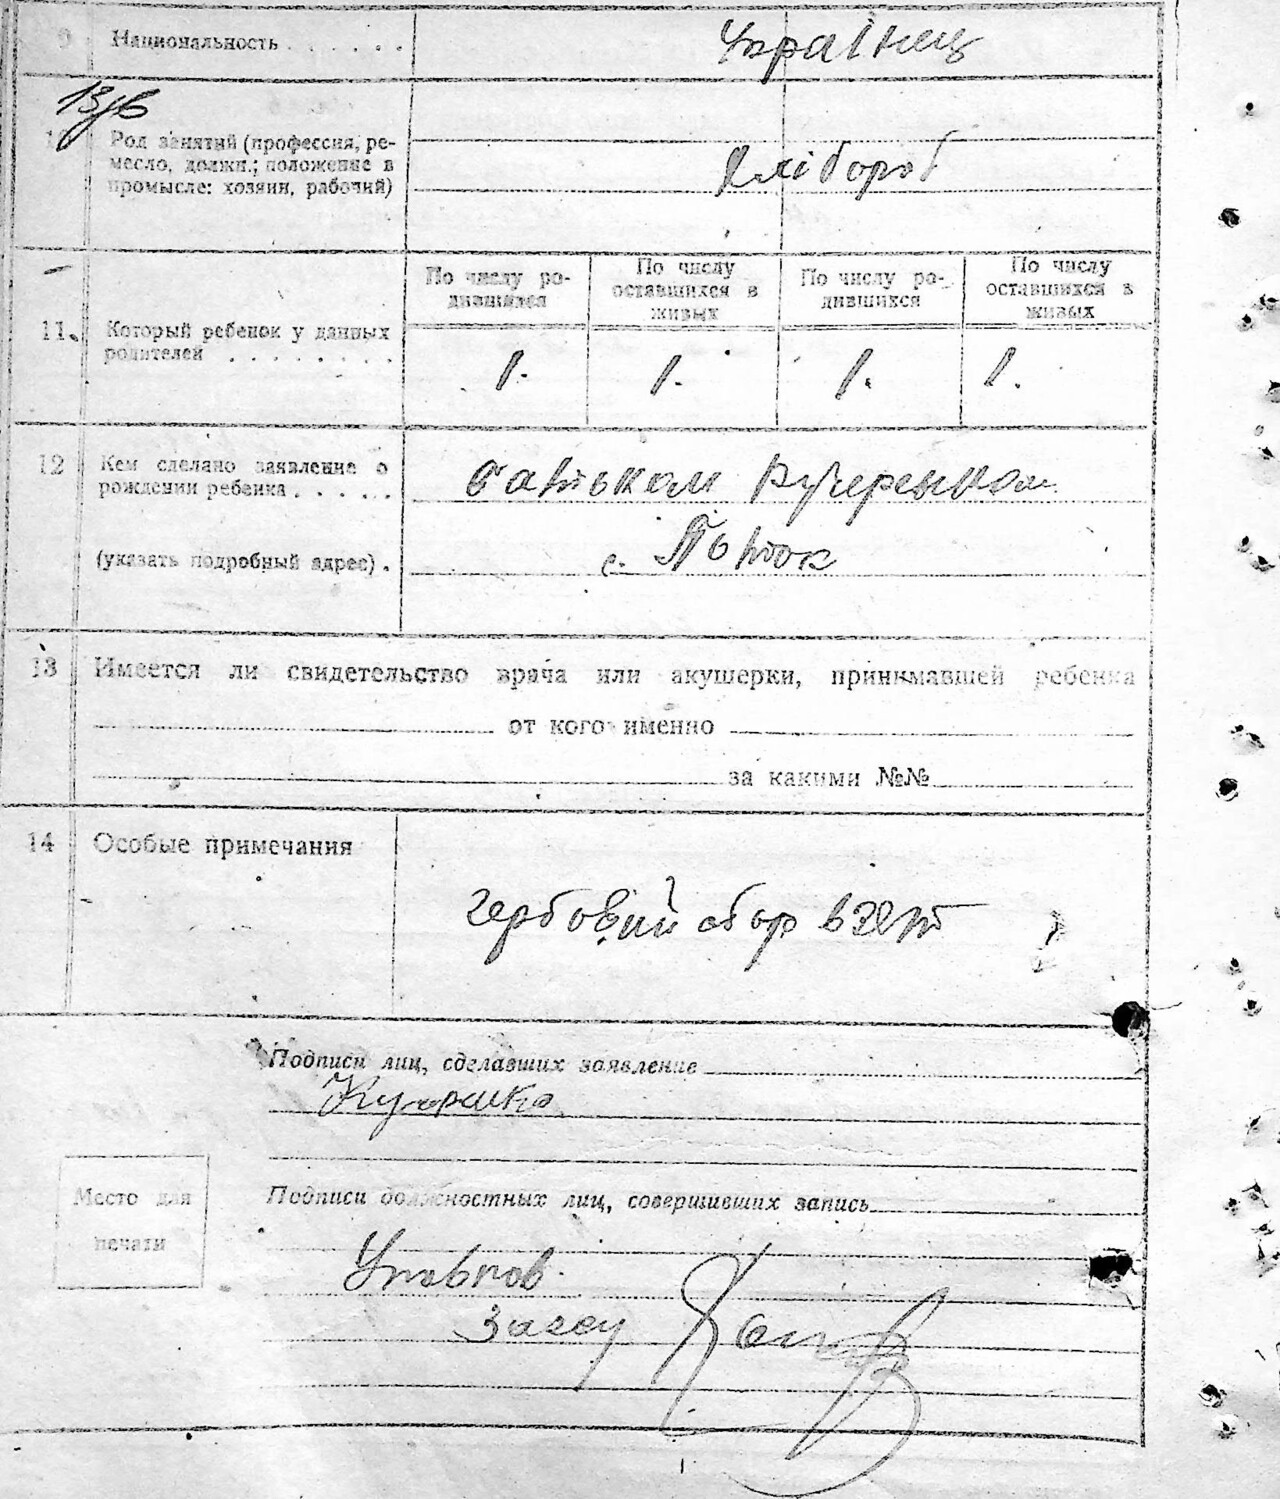 9 Национальность . . . . . . Українец
13 зв
10 Род занятий (профессия, ре-
месло, должн.; положение в
промысле: хозяин, рабочий)
хлібороб
По числу ро-
дившихся
По числу
оставшихся в
живых
По числу ро-
дившихся
По числу
оставшихся в
живых
11. Который ребенок у данных
родителей . . . . . . . .
1. 1. 1. 1.
12 Кем сделано заявление о
рождении ребенка . . . . .
батьком
(указать подробный адрес) .
с.
13 Имеется ли свидетельство врача или акушерки, принимавшей ребенка
от кого именно
за какими №№
14 Особые примечания
гербовий збор взят
Подписи лиц, сделавших заявление
Место для
печати
Подписи должностных лиц, совершивших запись
Уповнов.
Загсу